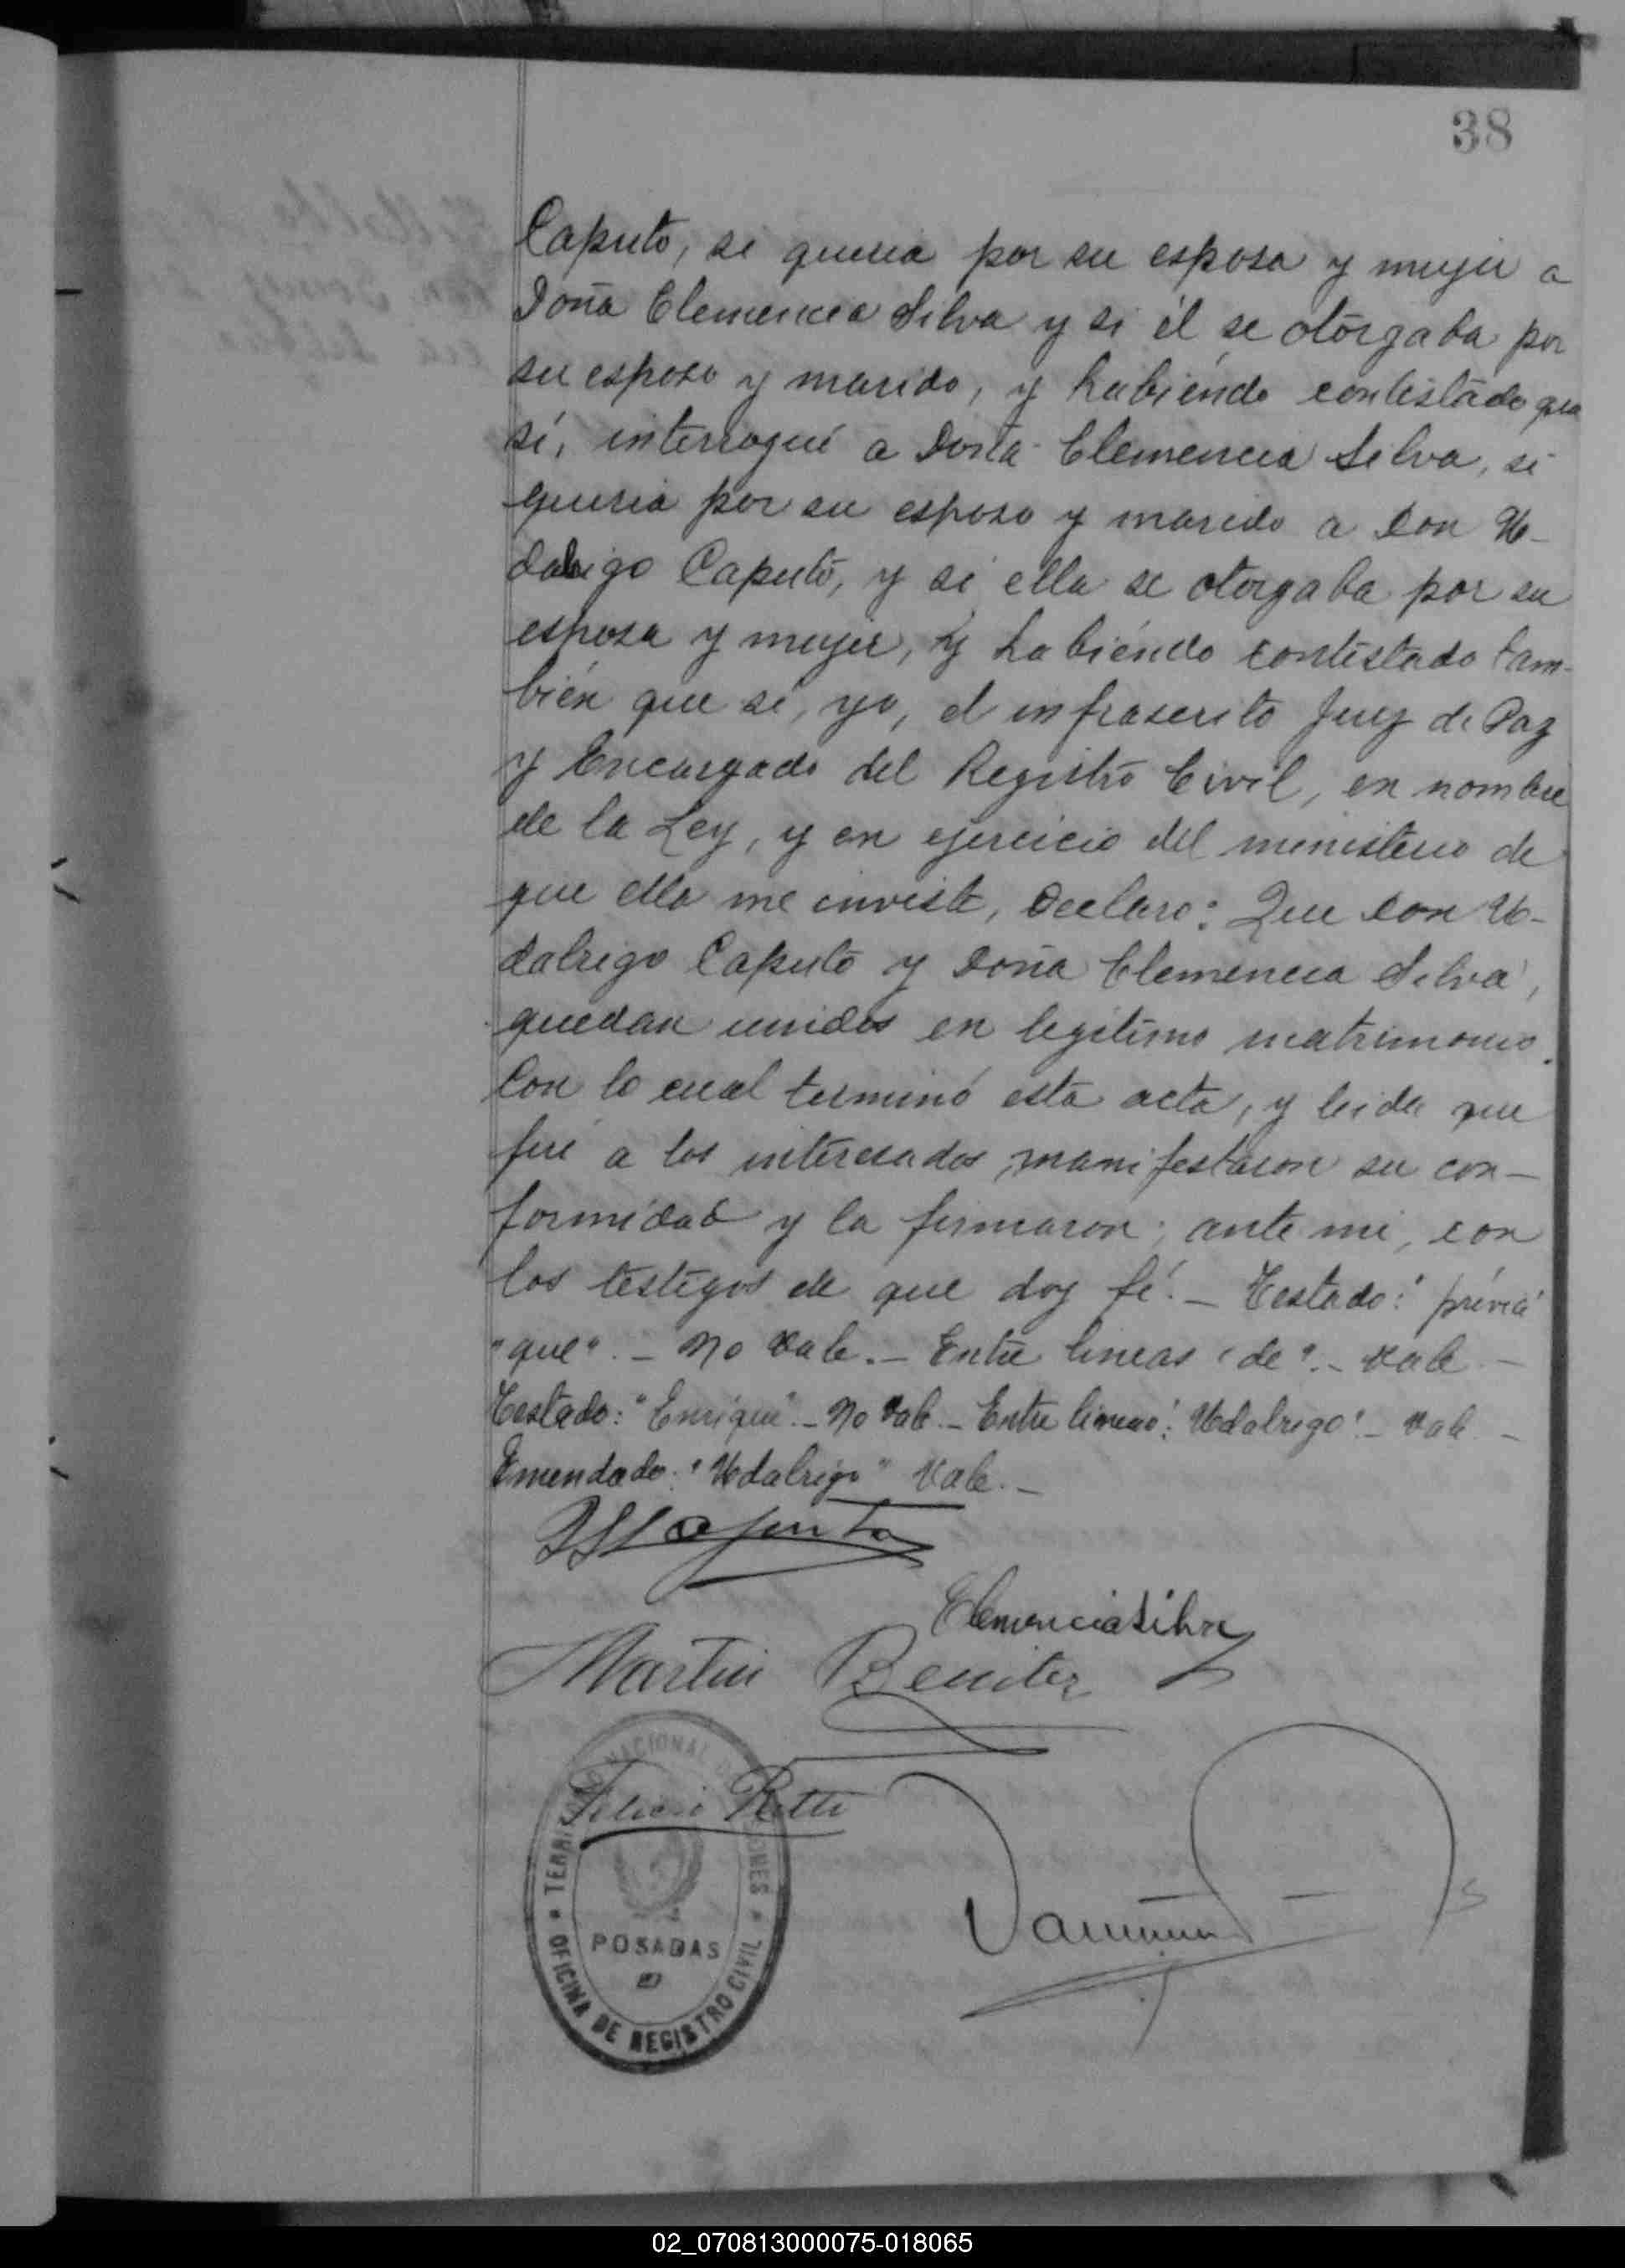 38
Caputo, si queria por su esposa y mujer a
Doña Clemencia Silva y si él se otorgaba por
su esposo y marido, y habiendo contestado que
sí, interrogué a Doña Clemencia Silva, si
queria por su esposo y marido a Don U-
dalrigo Caputo, y si ella se otorgaba por su
esposa y mujer, y habiendo contestado tam-
bién que sí, yo, el infrascrito Juez de Paz
y Encargado del Registro Civil, en nombre
de la Ley, y en ejercicio del ministerio de
que ella me inviste, Declaro: Que Don U-
dalrigo Caputo y Doña Clemencia Silva,
quedan unidos en legitimo matrimonio.
Con lo cual terminó esta acta, y leida que
fué a los interesados, manifestaron su con-
formidad y la firmaron, ante mi, con
los testigos de que doy fé. - Testado: "prévia"
"que". - No vale. - Entre lineas "de". - Vale -
Testado: "Enrique". - No vale. - Entre lineas: "Udalrigo". - Vale. -
Emendado: "Udalrigo" Vale. -
Clemencia Silva
Martin Benitez
TERRITORIO NACIONAL DE MISIONES
POSADAS
OFICINA DE REGISTRO CIVIL
02_070813000075-018065